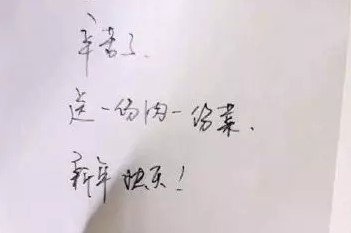 辛苦了.
送一份肉一份菜.
新年快乐!